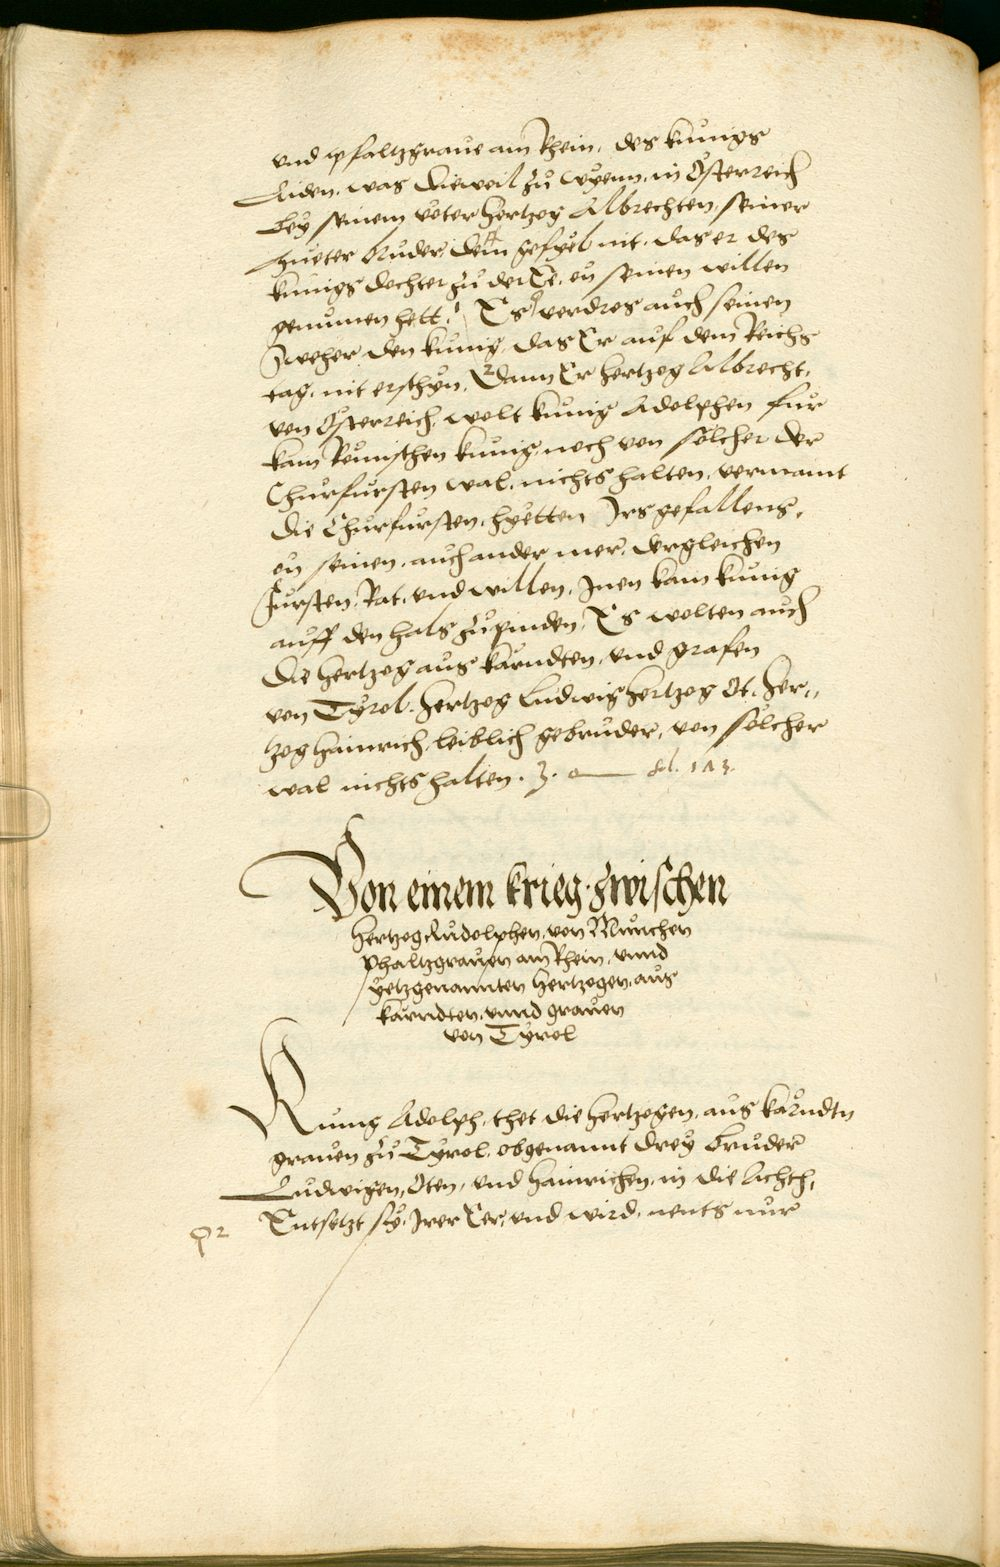 vnd pfaltzgraue am Rhein, des kunigs
Aiden, was dieweil zu wyenn, in Österreich
bey seinem veter hertzog Albrechten, seiner
mueter Bruder, dem gefyel nit, das er des
kunigs dochter zu der Ee, on seinen willen
genumen hett. Es verdros auch seinen
Sweher den kunig, das Er auf dem Reichs
tag, nit erschyn, Dann Er hertzog Albrecht,
von Österreich, wolt kunig Adolphen fur
kain Römischen kunig, noch von sölcher der
Churfursten wal, nichts halten, vermaint
die Churfursten, hyetten Irs gefallens,
on seinen, auch ander mer, dergleichen
fursten, Rat, vnd willen, Inen kain kunig
auff den hals zupinden, Es wolten auch
die hertzog aus kärndten, vnd grafen
von Tyrol, hertzog Ludwig hertzog Ot, her,,
tzog hainrich, leiblich gebruder, von sölcher
wal nichts halten. 3. fol. 113.
Von einem krieg zwischen
hertzog Rudolphen, von München
Phaltzgrauen am Rhein, vnnd
yetzgenannten hertzogen, aus
kärndten, vnnd grauen
von Tyrol
Kunig Adolph, thet die hertzogen, aus kärndtn
grauen zu Tyrol, obgenannt drey bruder
Ludwigen, Oten, vnd hainrichen, in die Achth,
Entsetzt sy, Irer Eer, vnd wird, nents nur